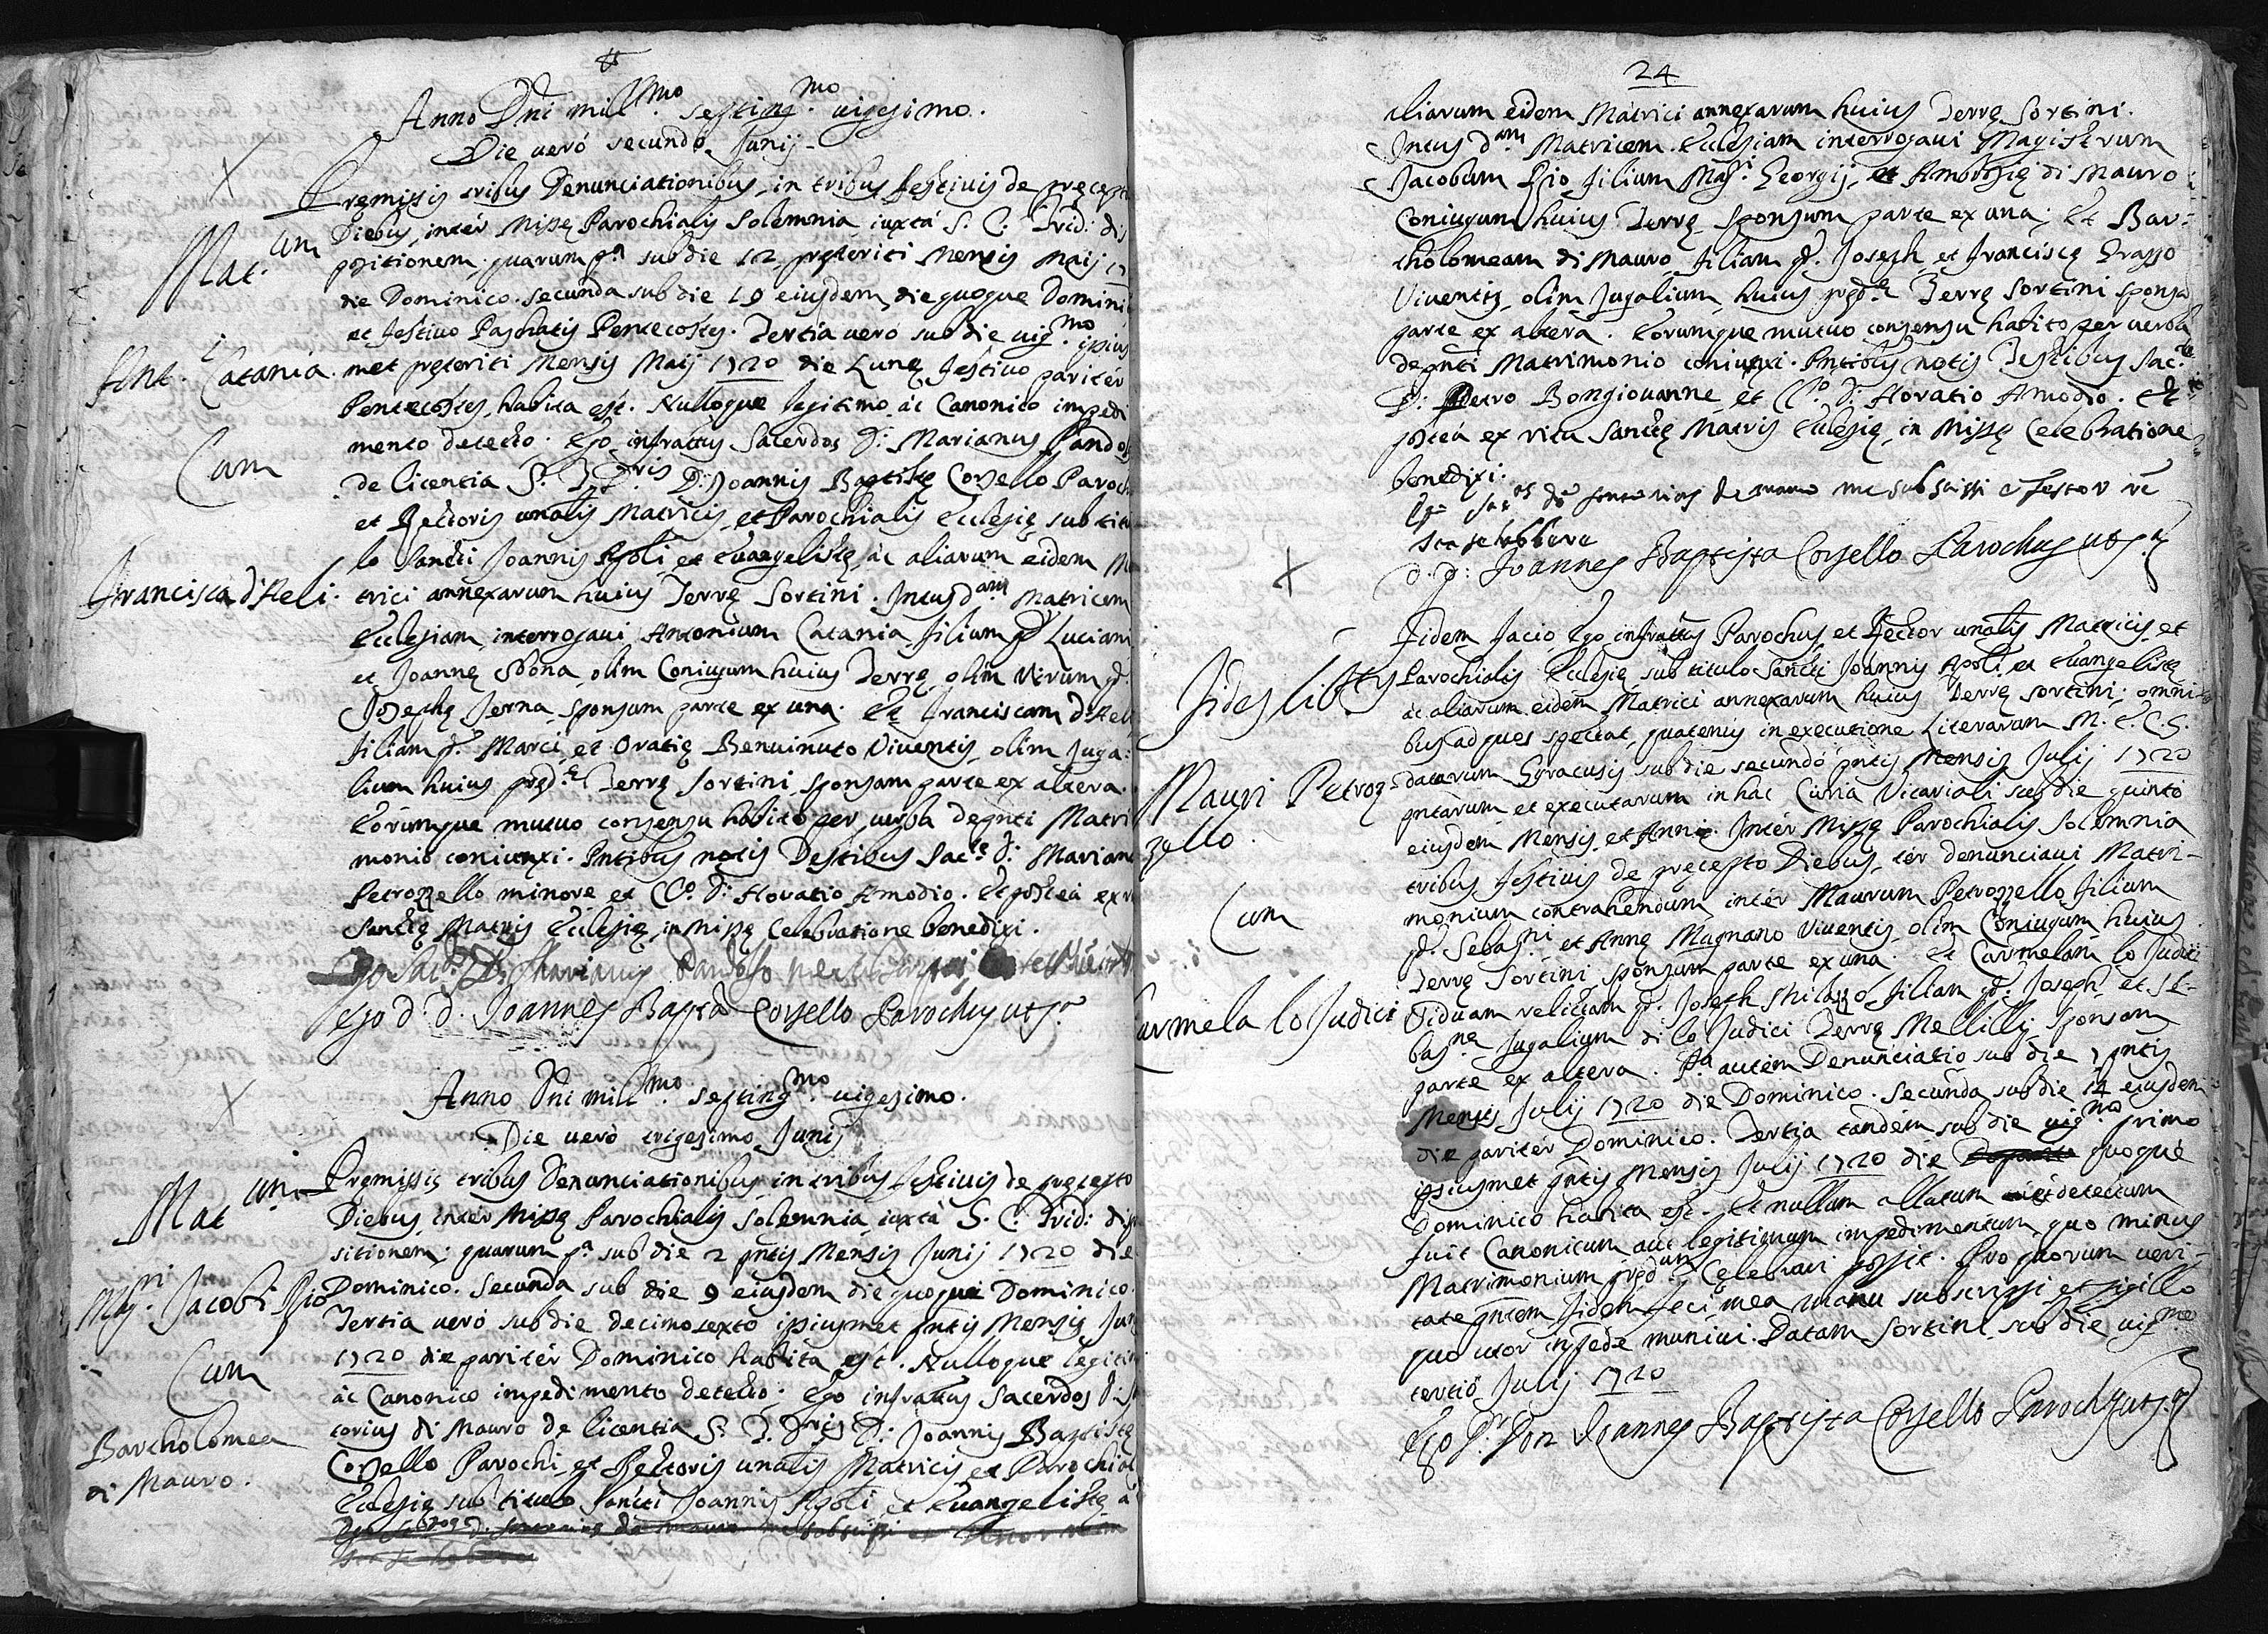 Anno Dni mill.mo septing.mo uigesimo.
Die ueró secundo Junij
Mat.um
Ant.i Catania
Cum
Francisca d'Aeli.
Premissis tribus Denunciationibus in tribus festiuis de precepto
Diebus, intér Misse Parochialis Solemnia iuxtá S. C. Trid: dis
positionem; quarum pa sub die 12 preteriti Mensis Maij 17
die Dominico. Secunda sub die 19 eiusdem, die quoque Domini
et festiuo Paschatis Pentecostes. Tertia ueró sub die uig.mo ipius
met preteriti Mensis Maij 1720 die Lune festiuo paritér
Pentecostes habita est. Nulloque legitimo, ác Canonico impedi
mento detecto. Ego infrattus Sacerdos D: Marianus Pandol
de licentia S. T. D.ris D: Joannis Baptiste Corsello Paroch
et Rectoris unatis Matricis, et Parochialis Ecclesie sub titu
lo Sancti Joannis Apoli et Euangeliste, ác aliarum eidem M
trici annexarum huius Terre Sortini. Intus d.am Matricem
Ecclesiam interrogaui Antonium Catania filium qd Luciani
et Joanne olim Coniugum huius Terre, olim Virum qd.
Josephe Jerna, sponsum parte ex una. Et Franciscam d'Aeli
filiam qd. Marci, et Oratie Benuinuto Viuentis, olim Juga:
lium huius pred.e Terre Sortini, sponsam parte ex altera.
Eórumque mutuo consensu habito per uerba depnti Matri
monio coniunxi. Pntibus notis Testibus Sac.te D: Mariano
Petrozzello minore et Cco. D: Horatio Amodio. Et posteá ex r
Sancte Matris Ecclesie, in Misse Celebratione benedixi.
Ego Sac. D. Marianus Pandolfo
Ego D. D. Joannes Bapta Corsello Parochus ut sa
Anno Dni mill.mo septing.mo uigesimo.
Die ueró trigesimo Junij
Mat.um
Mag.ri Jacobi Psio
Cum
Bartholomea
di Mauro.
Premissis tribus Denunciationibus in tribus festiuis de precepto
Diebus, intér Misse Parochialis Solemnia, iuxtá S. C. Trid: dispo
sitionem; quarum pa sub die 2 pntis Mensis Junij 1720 die
Dominico. Secunda sub die 9 eiusdem die quoque Dominico.
Tertia ueró sub die decimosexto ipsiusmet pntis Mensis Jun
1720 die paritér Dominico habita est. Nulloque legitim
ác Canonico impedimento detecto. Ego infrattus Sacerdos D:
torius di Mauro de licentia S. T. D.ris D: Joannis Baptiste
Corsello Parochi et Rectoris unatis Matricis, et Parochial
Ecclesie sub titulo Sancti Joannis Apoli et Euangeliste á
24
aliarum eidem Matrici annexarum huius Terre Sortini.
Intus d.am Matricem Ecclesiam interrogaui Magistrum
Jacobum Psio filium Mag.ri Georgij, et Ambrosie di Mauro
Coniugum huius Terre, sponsum parte ex una; Et Bar-
tholomeam di Mauro filiam qd. Joseph et Francisce Grasso
Viuentis, olim Jugalium, huius pred.e Terre Sortini sponsa
parte ex altera. Eorumque mutuo consensu habito per uerba
depnti Matrimonio coniunxi. Pntibus notis Testibus Sac.te
D: Petro Bongiouanne, et Cco. D: Horatio Amodio. Et
posteá ex ritu Sancte Matris Ecclesie, in Misse Celebratione
benedixi.
Ego Sac.os de mauro me subscrissi e
D. D: Joannes Baptista Corsello Parochus ut sa
Fides lib.tis
Mauri Petroz
zello.
Cum
Carmela lo Judici
Fidem facio Ego infrattus Parochus, et Rector unatis Matricis, et
Parochialis Ecclesie sub titulo Sancti Joannis Apoli, et Euangeliste
ác aliarum eidem Matrici annexarum huius Terre Sortini; omni-
bus ad quos spectat, quatenus in executione Literarum M. E. C. S.
datarum Syracusis sub die secundó pntis Mensis Julij 1720
pntarum et executarum in hac Curia Vicariali sub die quinto
eiusdem Mensis, et Anni. Intér Misse Parochialis Solemnia
tribus festiuis de precepto Diebus, tér denunciaui Matri-
monium contrahendum, intér Maurum Petrozzello filium
qd. Sebas.ni et Anne Magnano Viuentis, olim Coniugum, huius
Terre Sortini, sponsum parte ex una. Et Carmelam lo Judici
Viduam relictam qd. Joseph filiam qd. Joseph et Se-
bas.ne Jugalium di lo Judici Terre Mellilli, sponsam
parte ex altera. Pa autém Denunciatio sub die 7 pntis
Mensis Julij 1720 die Dominico. Secunda sub die 14 eiusdem
die paritér Dominico. Tertia tandém sub die uig.mo primo
ipsiusmet pntis Mensis Julij 1720 die quoque
Dominico habita est. Et nullum allatum detectum
fuit Canonicum aut legitimum impedimentum, quo minus
Matrimonium pred.um Celebrari possit. Pro quorum ueri-
tate pntem fidem feci mea manu subscripsi, et sigillo
quo utor in pede muniui. Datam Sortini sub die uig.mo
tertió Julij 1720
Ego Dr. Don Joannes Baptista Corsello Parochus ut sa